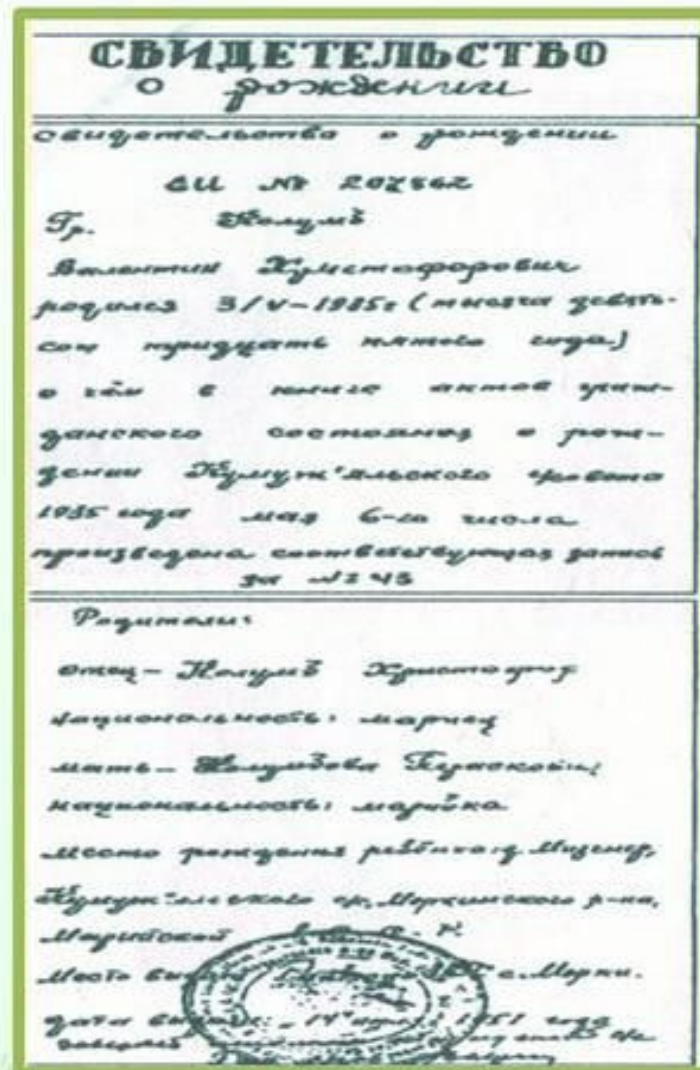 СВИДЕТЕЛЬСТВО
о рождении
свидетельства о рождении
СИ № 207862
Гр. Колумб
Валентин Христофорович
родился 3/V-1935г (тысяча девять-
сот тридцать пятого года)
о чём в книге актов граж-
данского состояния о рож-
дении Кумуж'яльского с/совета
1935 года мая 6-го числа
произведена соответствующая запись
за №43
Родители:
отец – Колумб Христофор
национальность: мариец
мать – Колумбова Параскови
национальность: марийка
место рождения ребёнка д. Мизенер,
Кумуж'яльского с/с, Моркинского р-на,
Марийской
Место с. Морки.
дата 14 1951 года